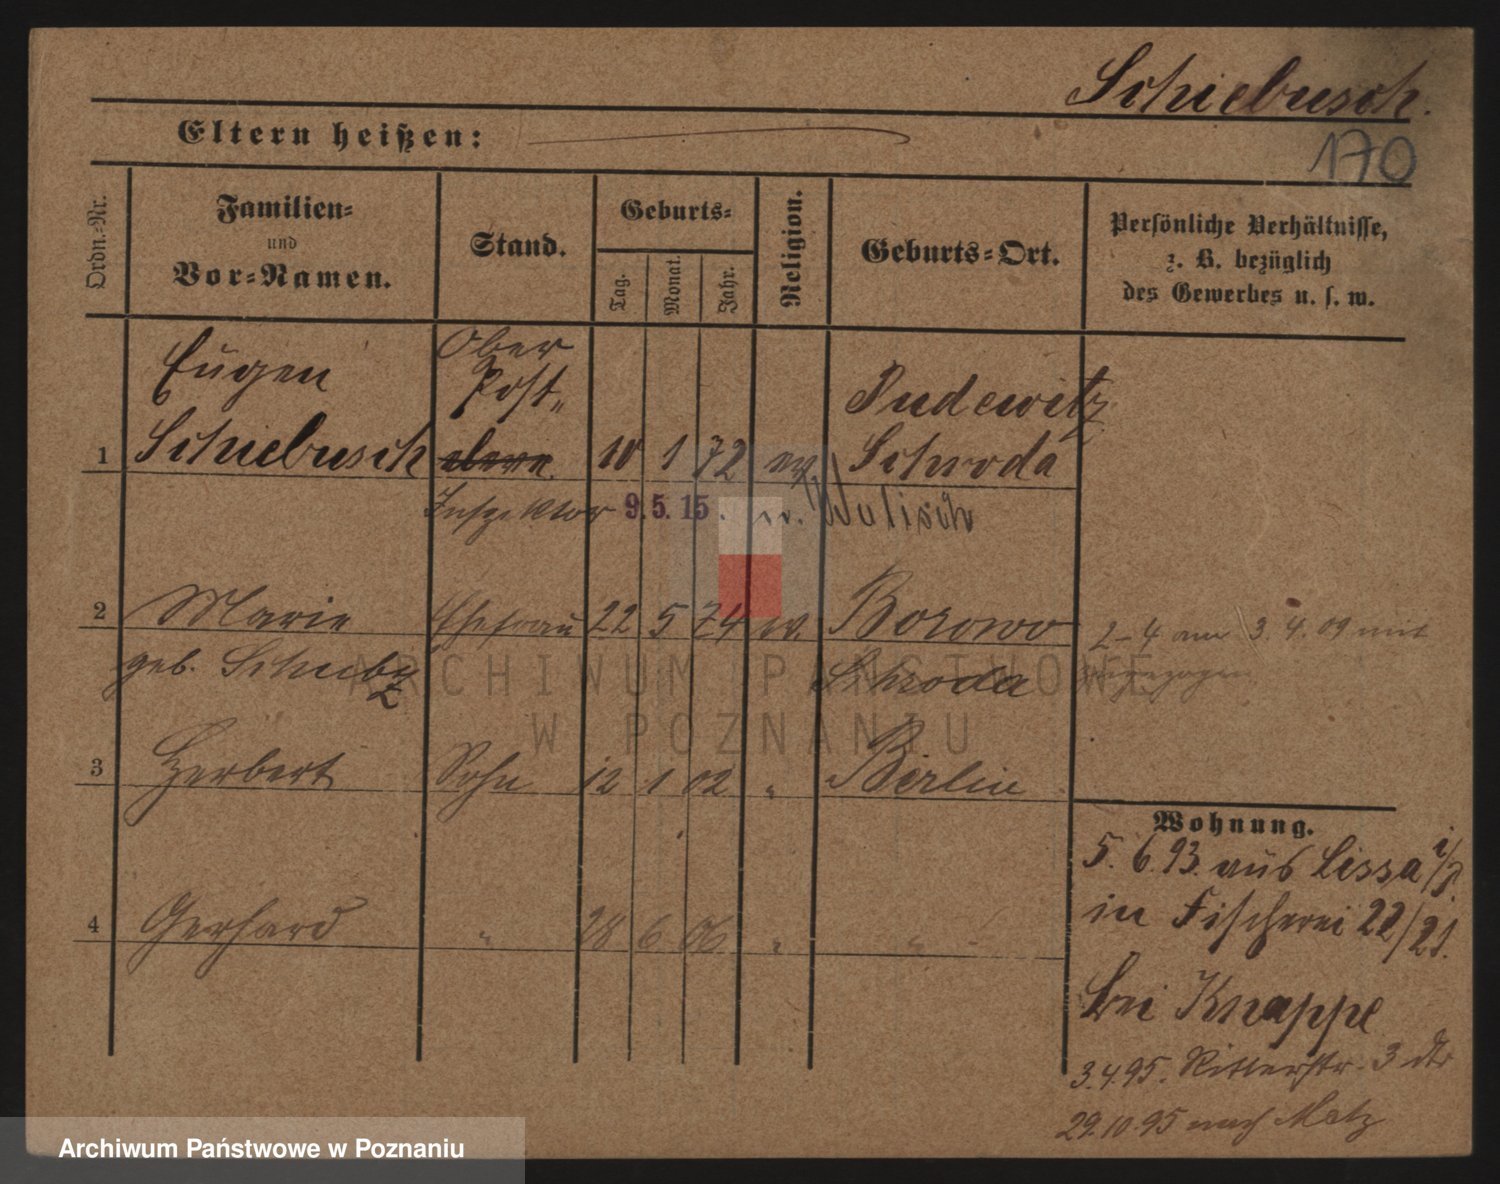 Schiebusch.
Eltern heißen:
170
Ordn.-Nr.
Familien-
und
Vor-Namen.
Stand.
Geburts-
Tag.
Monat.
Jahr.
Religion.
Geburts-Ort.
Persönliche Verhältnisse,
z. B. bezüglich
des Gewerbes u. s. w.
Eugen Ober Post- Pudewitz
1 Schiebusch 10 1 72 ev. Schroda
Inspektor 9. 5. 15. n. Wulisch
2 Marie Ehefrau 22 5 74 ev. Borowo
geb. Schubz Schroda
2-4 am 3. 4. 09 mit
zugezogen
3 Herbert Sohn 12 1 02 " Berlin
4 Gerhard " 28 6 06 " "
Wohnung.
5. 6. 93. aus Lissa i/P
in Fischerei 22/21.
bei Knappe
3. 4. 95. Ritterstr. 3
29. 10. 95 nach Metz
ARCHIWUM PAŃSTWOWE
W POZNANIU
Archiwum Państwowe w Poznaniu